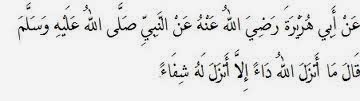 عَنْ أَبِي هُرَيْرَةَ رَضِيَ اللهُ عَنْهُ عَنْ النَّبِيِّ صَلَّى اللهُ عَلَيْهِ وَسَلَّمَ
قَالَ مَا أَنْزَلَ اللهُ دَاءً إِلَّا أَنْزَلَ لَهُ شِفَاءً